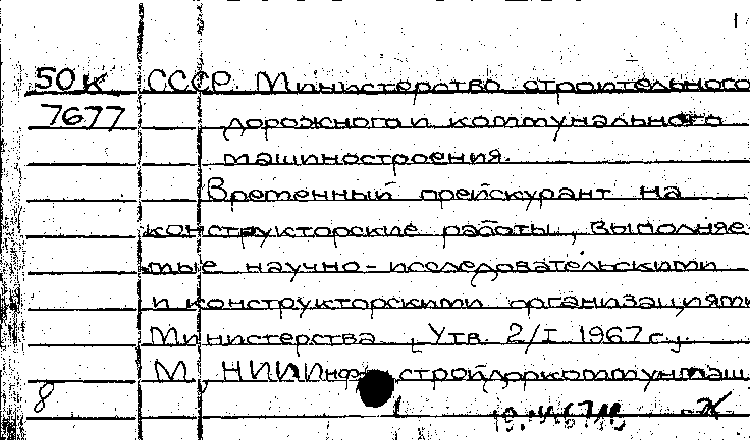 50к СССР. Министерство строительного
7677 дорожного и коммунального
машиностроения.
Временный прейскурант на
конструкторские работы, выполняе
мые научно-исследовательскими
и конструкторскими организациями
Министерства [Утв. 2/I 1967г.].
М., НИИИнф стройдоркоммунмаш
8